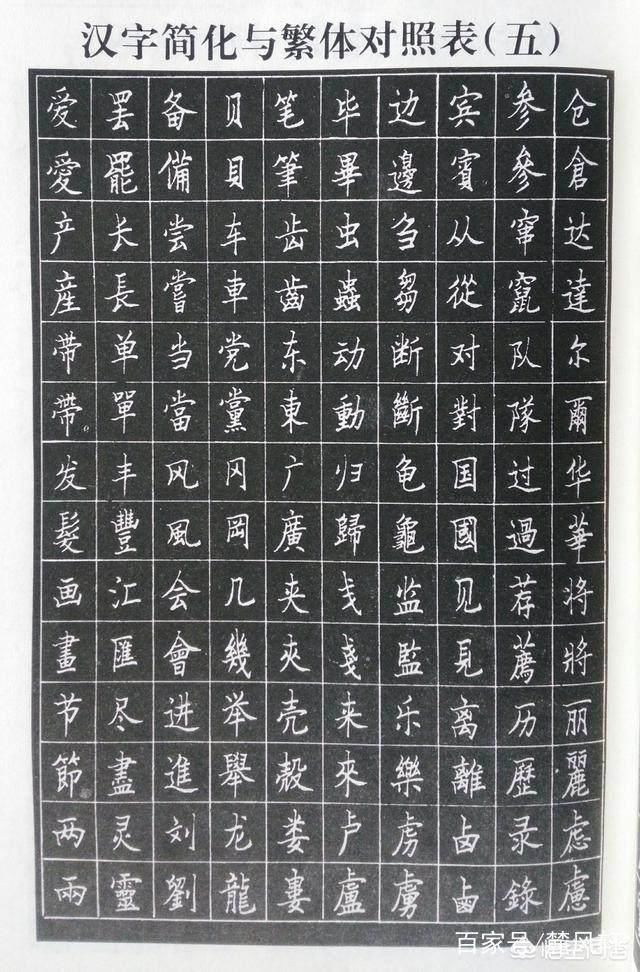 汉字简化与繁体对照表(五)
爱 罢 备 贝 笔 毕 边 宾 参 仓
愛 罷 備 貝 筆 畢 邊 賓 參 倉
产 长 尝 车 齿 虫 刍 从 窜 达
産 長 嘗 車 齒 蟲 芻 從 竄 達
带 单 当 党 东 动 断 对 队 尔
帶 單 當 黨 東 動 斷 對 隊 爾
发 丰 风 冈 广 归 龟 国 过 华
髮 豐 風 岡 廣 歸 龜 國 過 華
画 汇 会 几 夹 戋 监 见 荐 将
畫 匯 會 幾 夾 戔 監 見 薦 將
节 尽 进 举 壳 来 乐 离 历 丽
節 盡 進 舉 殼 來 樂 離 歷 麗
两 灵 刘 龙 娄 卢 虏 卤 录 虑
兩 靈 劉 龍 婁 盧 虜 鹵 錄 慮
百家号/